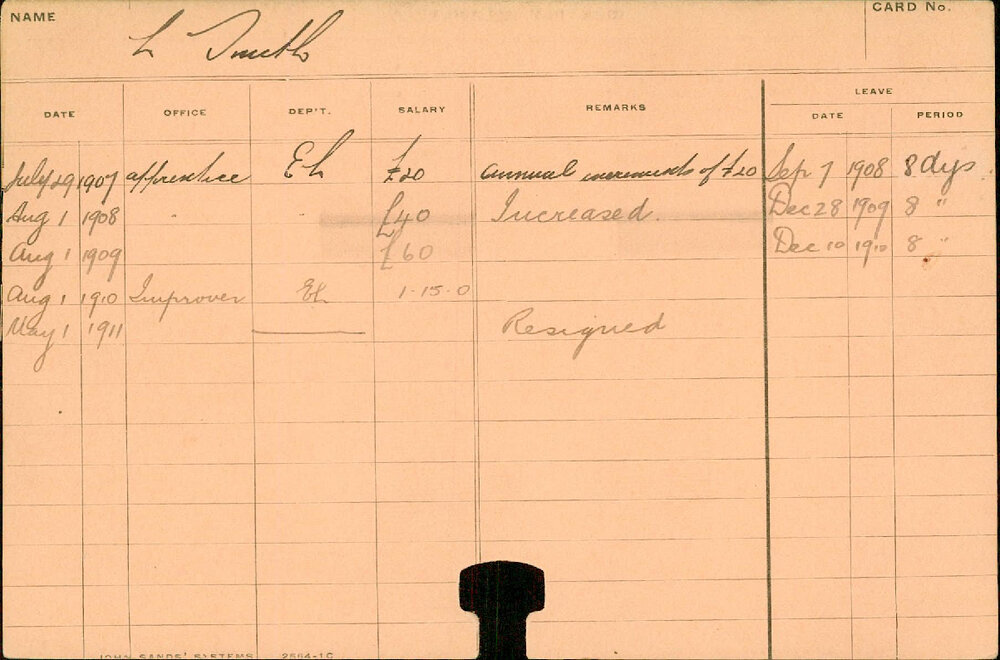 NAME L Smith CARD No.
LEAVE
DATE OFFICE DEP'T. SALARY REMARKS DATE PERIOD
July 29 1907 apprentice EL £20 annual increments of £20 Sep 7 1908 8 dys
Aug 1 1908 " " £40 Increased. Dec 28 1909 8 "
Aug 1 1909 £60 Dec 10 1910 8 "
Aug 1 1910 Improver EL 1-15-0
May 1 1911 Resigned
JOHN SANDS' SYSTEMS 2564-1C